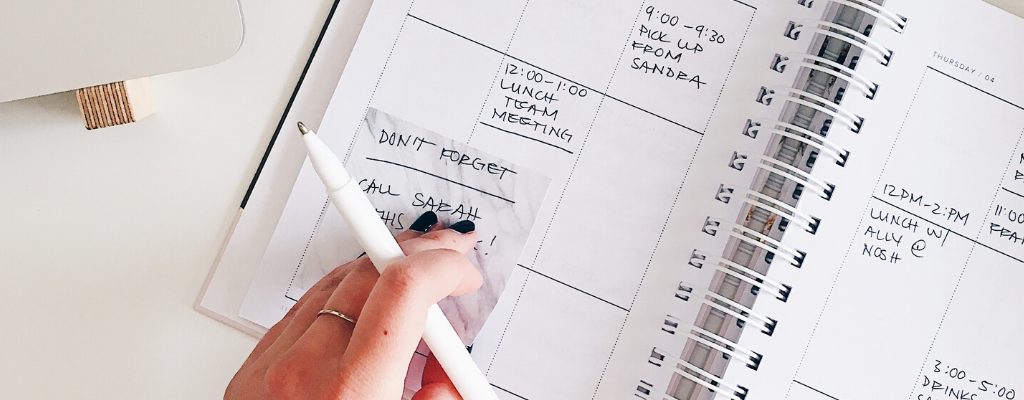 9:00-9:30
PICK UP
FROM
SANDRA
12:00-1:00
LUNCH
TEAM
MEETING
DON'T FORGET
CALL SARAH
THIS
THURSDAY / 04
12PM-2:PM
LUNCH W/
ALLY @
NOSH
11:00
3:00-5:00
DRINKS